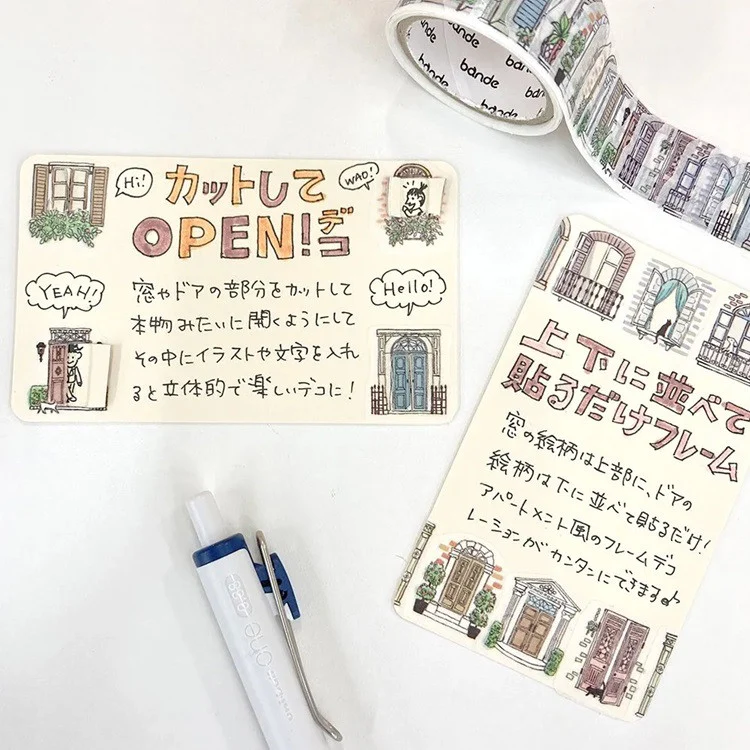 bande
bande
bande
Hi!
カットして
WAO!
OPEN!デコ
YEAH!
Hello!
窓やドアの部分をカットして
本物みたいに開くようにして
その中にイラストや文字を入れ
ると立体的で楽しいデコに!
上下に並べて
貼るだけフレーム
窓の絵柄は上部に、ドアの
絵柄は下に並べて貼るだけ!
アパートメント風のフレームデコ
レーションがカンタンにできます♪
uni-ball one